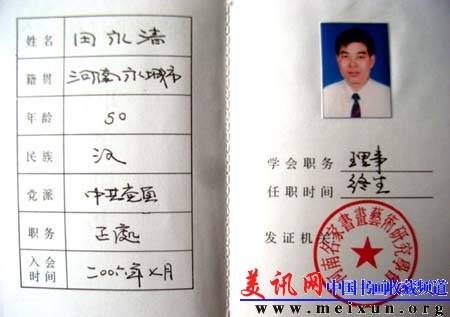 姓名 田永清
籍贯 河南永城市
年龄 50
民族 汉
党派 中共党员
职务 正处
入会时间 二00六年 月
学会职务 理事
任职时间 终生
发证机关
河南名家書畫藝術研究學會
美讯网 中国书画收藏频道
www.meixun.org